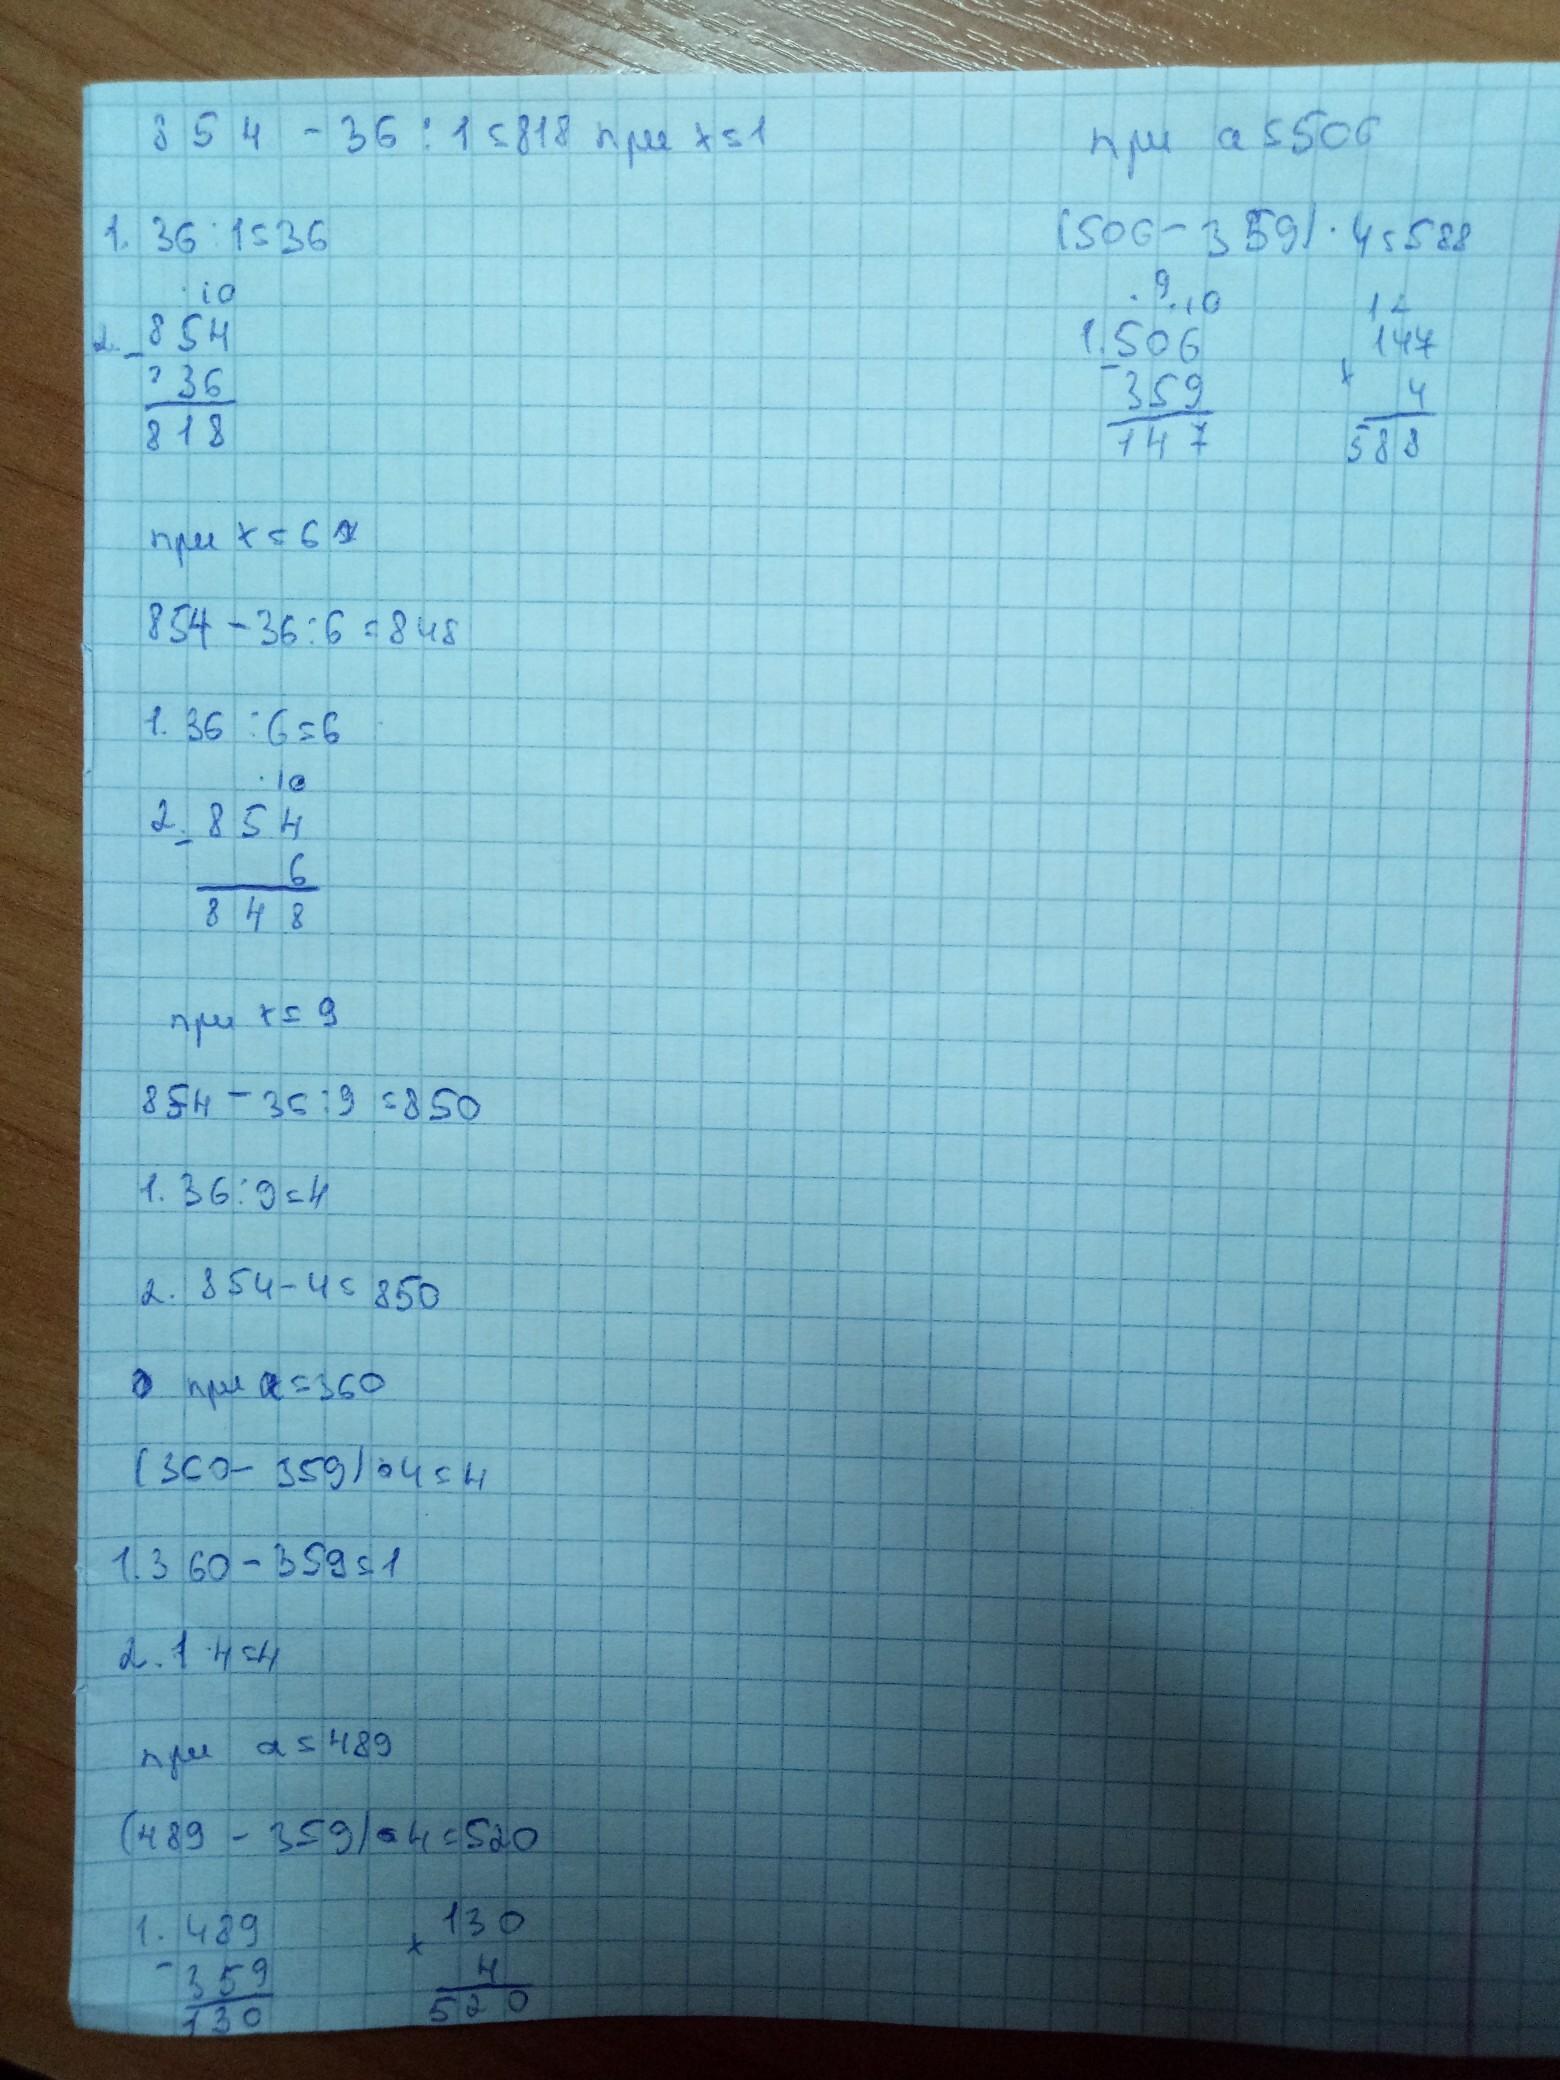 854 - 36 : 1 = 818 при x = 1
1. 36 : 1 = 36
10
2. - 854
36
818
при x = 6
854 - 36 : 6 = 848
1. 36 : 6 = 6
10
2. - 854
6
848
при x = 9
854 - 36 : 9 = 850
1. 36 : 9 = 4
2. 854 - 4 = 850
при a = 360
(360 - 359) · 4 = 4
1. 360 - 359 = 1
2. 1 · 4 = 4
при a = 489
(489 - 359) · 4 = 520
1. 489
- 359
130
130
x 4
520
при a = 506
(506 - 359) · 4 = 588
9 10
1. 506
- 359
147
12
147
x 4
588